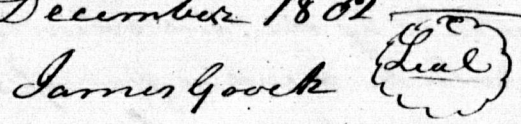 December 1802
James Goock Seal